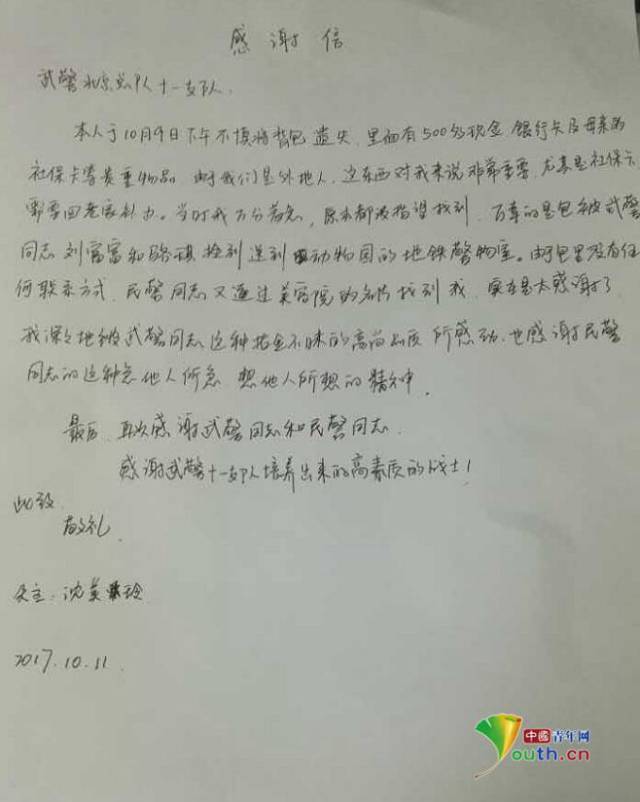 感谢信
武警北京总队十一支队.
本人于10月9日下午不慎将背包遗失,里面有500多现金,银行卡及母亲的
社保卡等贵重物品,由于我们是外地人,这东西对我来说非常重要,尤其是社保卡
需要回老家补办。当时我万分着急,原本都没指望找到,万幸的是包被武警
同志刘富富和骆祺捡到送到动物园的地铁警物室。由于包里没有任
何联系方式,民警同志又通过美容院的名片找到我,实在是太感谢了
我深深地被武警同志这种拾金不昧的高尚品质所感动.也感谢民警
同志的这种急他人所急,想他人所想的精神.
最后,再次感谢武警同志和民警同志.
感谢武警十一支队培养出来的高素质的战士!
此致
敬礼.
失主:沈美玲
2017.10.11.
中國青年网
Youth.cn